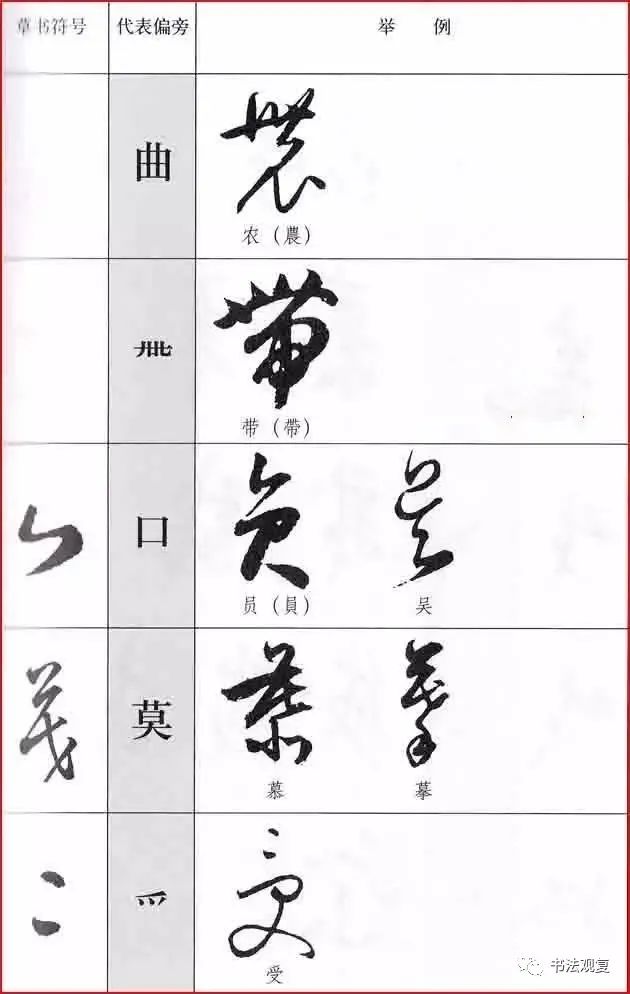 草书符号 代表偏旁 举例
曲
農
农（農）
卌
帶
带（帶）
口
員 吴
员（員） 吴
莫
慕 摹
慕 摹
爫
受
受
书法观复